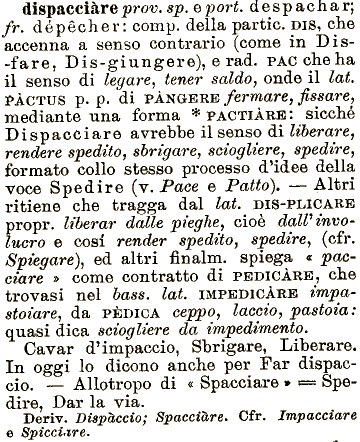 dispacciàre prov. sp. e port. despachar;
fr. dépêcher: comp. della partic. DIS, che
accenna a senso contrario (come in Dis-
-fare, Dis-giungere), e rad. PAC che ha
il senso di legare, tener saldo, onde il lat.
PÀCTUS p. p. di PÀNGERE fermare, fissare,
mediante una forma * PACTIÀRE: sicché
Dispacciare avrebbe il senso di liberare,
rendere spedito, sbrigare, sciogliere, spedire,
formato collo stesso processo d'idee della
voce Spedire (v. Pace e Patto). — Altri
ritiene che tragga dal lat. DIS-PLICARE
propr. liberar dalle pieghe, cioè dall'invo-
lucro e cosí render spedito, spedire, (cfr.
Spiegare), ed altri finalm. spiega « pac-
ciare » come contratto di PEDICÀRE, che
trovasi nel bass. lat. IMPEDICÀRE impa-
stoiare, da PÈDICA ceppo, laccio, pastoia:
quasi dica sciogliere da impedimento.
Cavar d'impaccio, Sbrigare, Liberare.
In oggi lo dicono anche per Far dispac-
cio. — Allotropo di « Spacciare » = Spe-
dire, Dar la via.
Deriv. Dispàccio; Spacciàre. Cfr. Impacciare
e Spicciare.